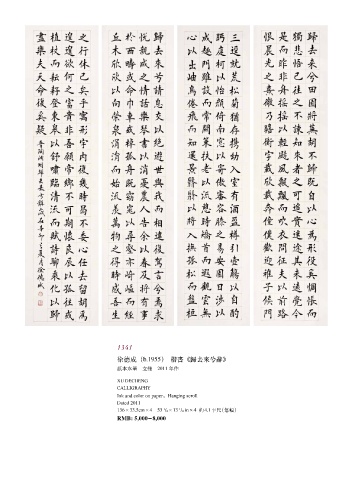 歸去來兮田園將蕪胡不歸既自以心為形役奚惆悵而
獨悲悟已往之不諫知來者之可追實迷途其未遠覺今
是而昨非舟搖搖以輕颺風飄飄而吹衣問征夫以前路
恨晨光之熹微乃瞻衡宇載欣載奔僮僕歡迎稚子候門
三逕就荒松菊猶存攜幼入室有酒盈罇引壺觴以自酌
眄庭柯以怡顏倚南窗以寄傲審容膝之易安園日涉以
成趣門雖設而常關策扶老以流憩時矯首而遐觀雲無
心以出岫鳥倦飛而知還景翳翳以將入撫孤松而盤桓
歸去來兮請息交以絕遊世與我而相違復駕言兮焉求
悅親戚之情話樂琴書以消憂農人告余以春及將有事
於西疇或命巾車或棹孤舟既窈窕以尋壑亦崎嶇而經
丘木欣欣以向榮泉涓涓而始流羨萬物之得時感吾生
之行休已矣乎寓形宇內復幾時曷不委心任去留胡為
遑遑欲何之富貴非吾願帝鄉不可期懷良辰以孤往或
植杖而耘耔登東皋以舒嘯臨清流而賦詩聊乘化以歸
盡樂夫天命復奚疑 晉陶淵明歸去來兮辭 歲在辛卯之夏月徐德成
1361
徐德成 (b.1955) 楷書《歸去來兮辭》
紙本水墨 立軸 2011年作
XU DECHENG
CALLIGRAPHY
Ink and color on paper, Hanging scroll
Dated 2011
RMB: 5,000–8,000